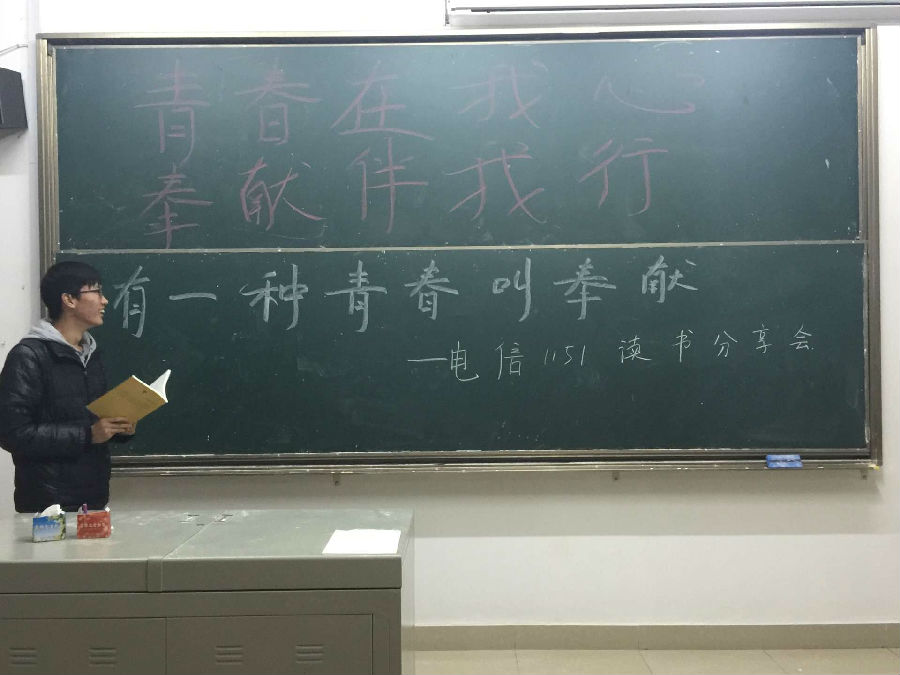 青春在我心
奉献伴我行
有一种青春叫奉献
—电信1151读书分享会